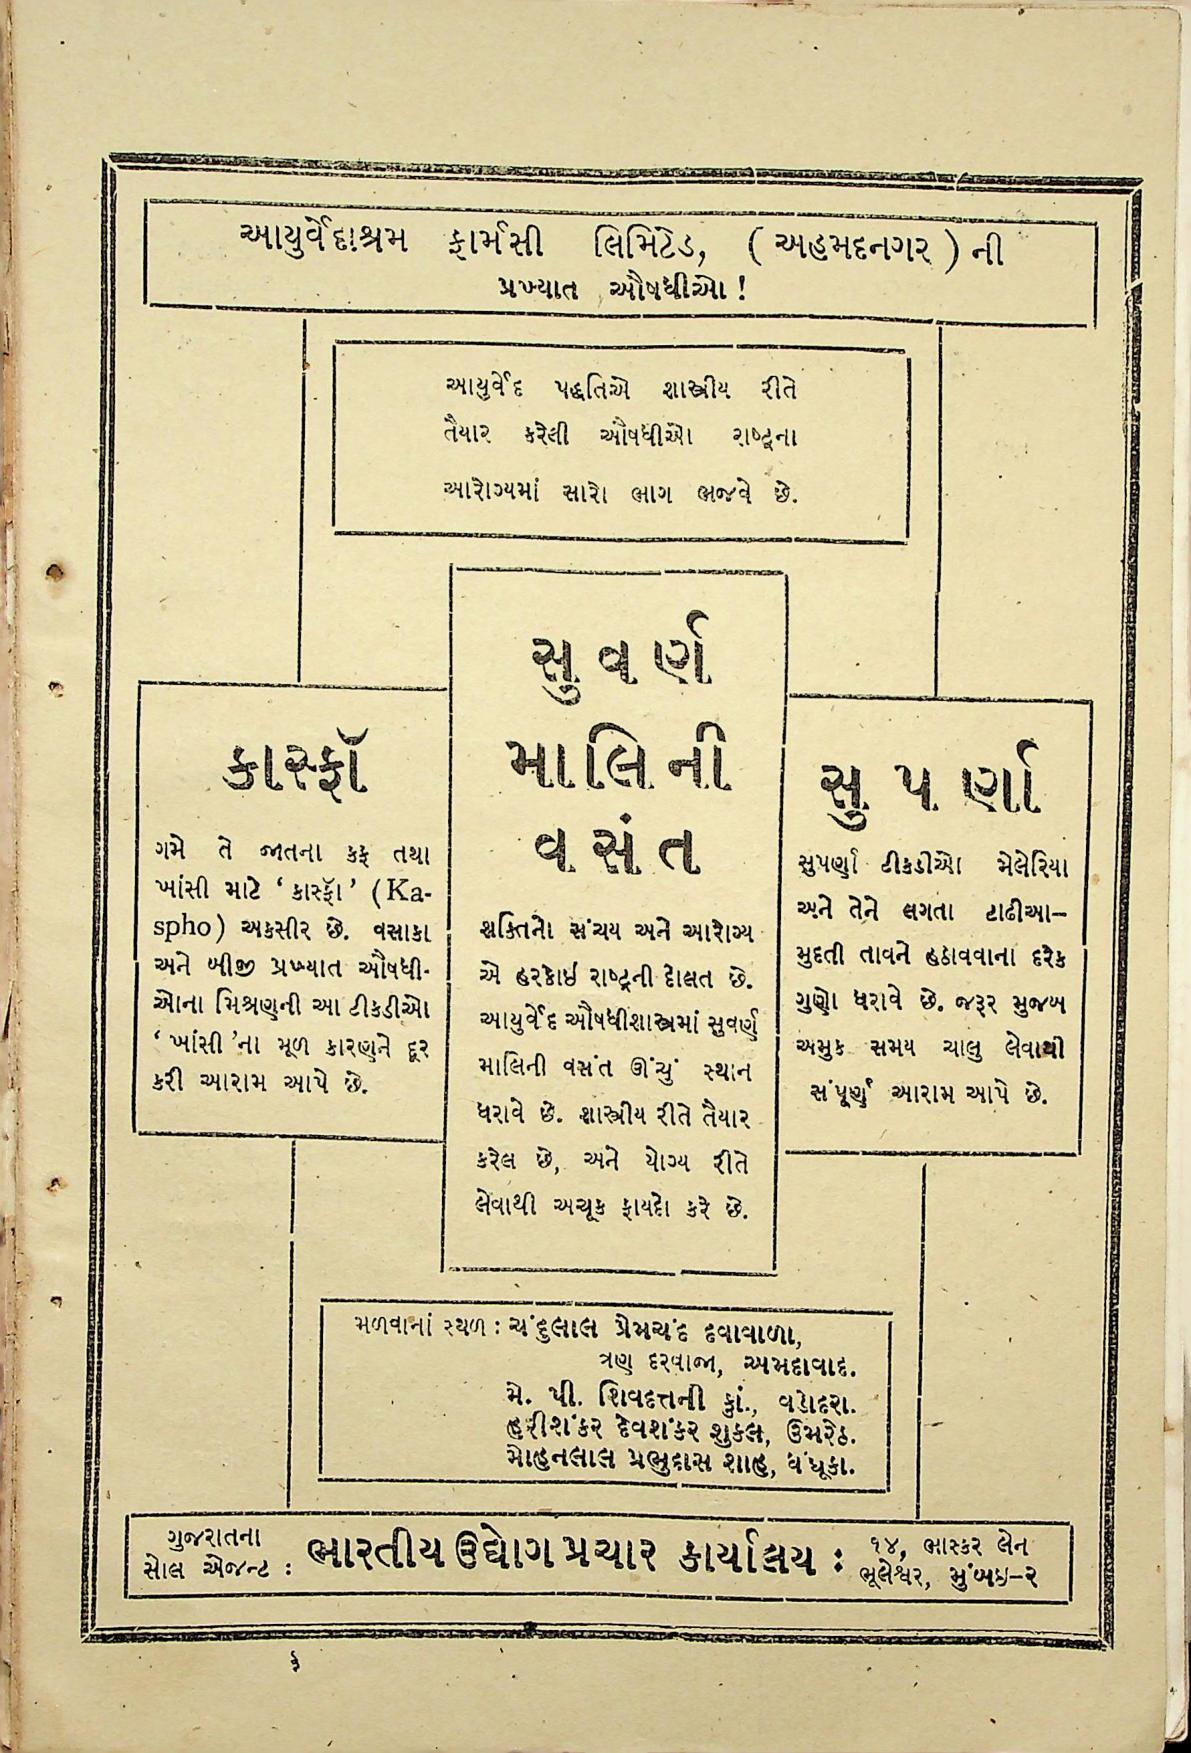 આયુર્વેદાશ્રમ ફાર્મસી લિમિટેડ, ( અહમદનગર ) ની
પ્રખ્યાત ઔષધીઓ !
આયુર્વેદ પદ્ધતિએ શાસ્ત્રીય રીતે
તૈયાર કરેલી ઔષધીઓ રાષ્ટ્રના
આરોગ્યમાં સારો ભાગ ભજવે છે.
કાસ્ફૉ
ગમે તે જાતના કફ તથા
ખાંસી માટે ‘ કાસ્ફૉ ’ ( Ka-
spho ) અકસીર છે. વસાકા
અને બીજી પ્રખ્યાત ઔષધી-
ઓના મિશ્રણની આ ટીકડીઓ
‘ ખાંસી ’ના મૂળ કારણને દૂર
કરી આરામ આપે છે.
સુવર્ણ
માલિની
વસંત
શક્તિનો સંચય અને આરોગ્ય
એ હરકોઈ રાષ્ટ્રની દોલત છે.
આયુર્વેદ ઔષધીશાસ્ત્રમાં સુવર્ણ
માલિની વસંત ઊંચું સ્થાન
ધરાવે છે. શાસ્ત્રીય રીતે તૈયાર
કરેલ છે, અને યોગ્ય રીતે
લેવાથી અચૂક ફાયદો કરે છે.
સુપર્ણા
સુપર્ણા ટીકડીઓ મેલેરિયા
અને તેને લગતા ટાઢીઆ–
મુદતી તાવને હઠાવવાના દરેક
ગુણો ધરાવે છે. જરૂર મુજબ
અમુક સમય ચાલુ લેવાથી
સંપૂર્ણ આરામ આપે છે.
મળવાનાં સ્થળ : ચંદુલાલ પ્રેમચંદ દવાવાળા,
ત્રણ દરવાજા, અમદાવાદ.
મે. પી. શિવદત્તની કું., વડોદરા.
હરીશંકર દેવશંકર શુકલ, ઉમરેઠ.
મોહનલાલ પ્રભુદાસ શાહ, ધંધૂકા.
ગુજરાતના
સોલ એજન્ટ :
ભારતીય ઉદ્યોગ પ્રચાર કાર્યાલય :
૧૪, ભાસ્કર લેન
ભૂલેશ્વર, મુંબઇ–૨